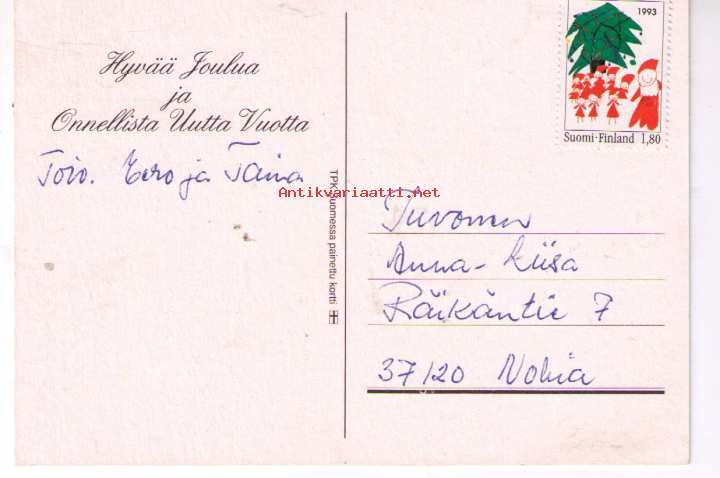 Hyvää Joulua
ja
Onnellista Uutta Vuotta
Toiv. Eero ja Taina
1993
Suomi-Finland 1,80
Antikvariaatti.net
TPK Suomessa painettu kortti
Turonen
Anna-Liisa
Räikäntie 7
37120 Nokia